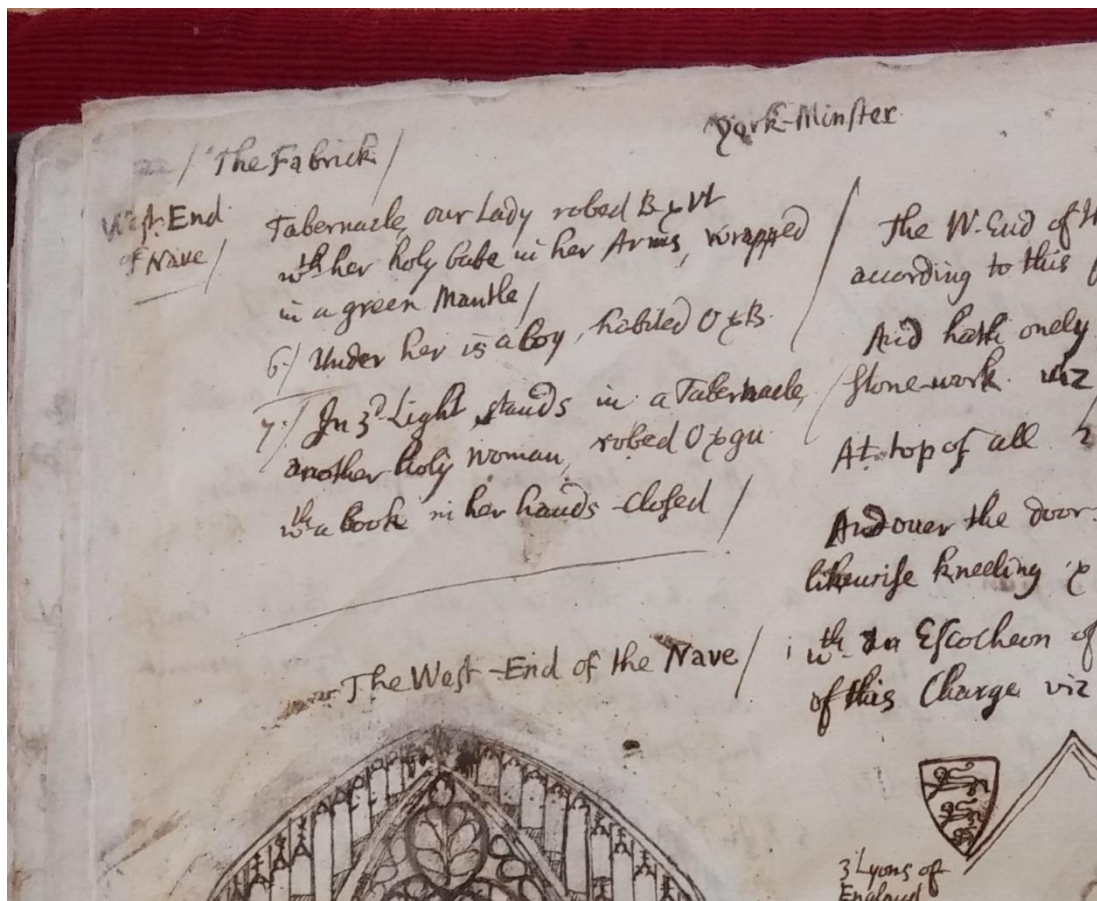 York-Minster
/ The Fabrick /
West End
of Nave /
Tabernacle, our Lady robed B & vt
wth her holy babe in her Arms, wrapped
in a green Mantle /
6 / Under her is a boy, habited O & B.
7 / In 3d Light stands in a Tabernacle,
another holy woman, robed O & gu
wth a book in her hands closed /
The West-End of the Nave /
The W-End of
acording to this
And hath onely
stone-work. viz
At top of all
And ouer the door
likewise kneeling &
wth an Escocheon of
of this Charge viz
3 Lyons of
England